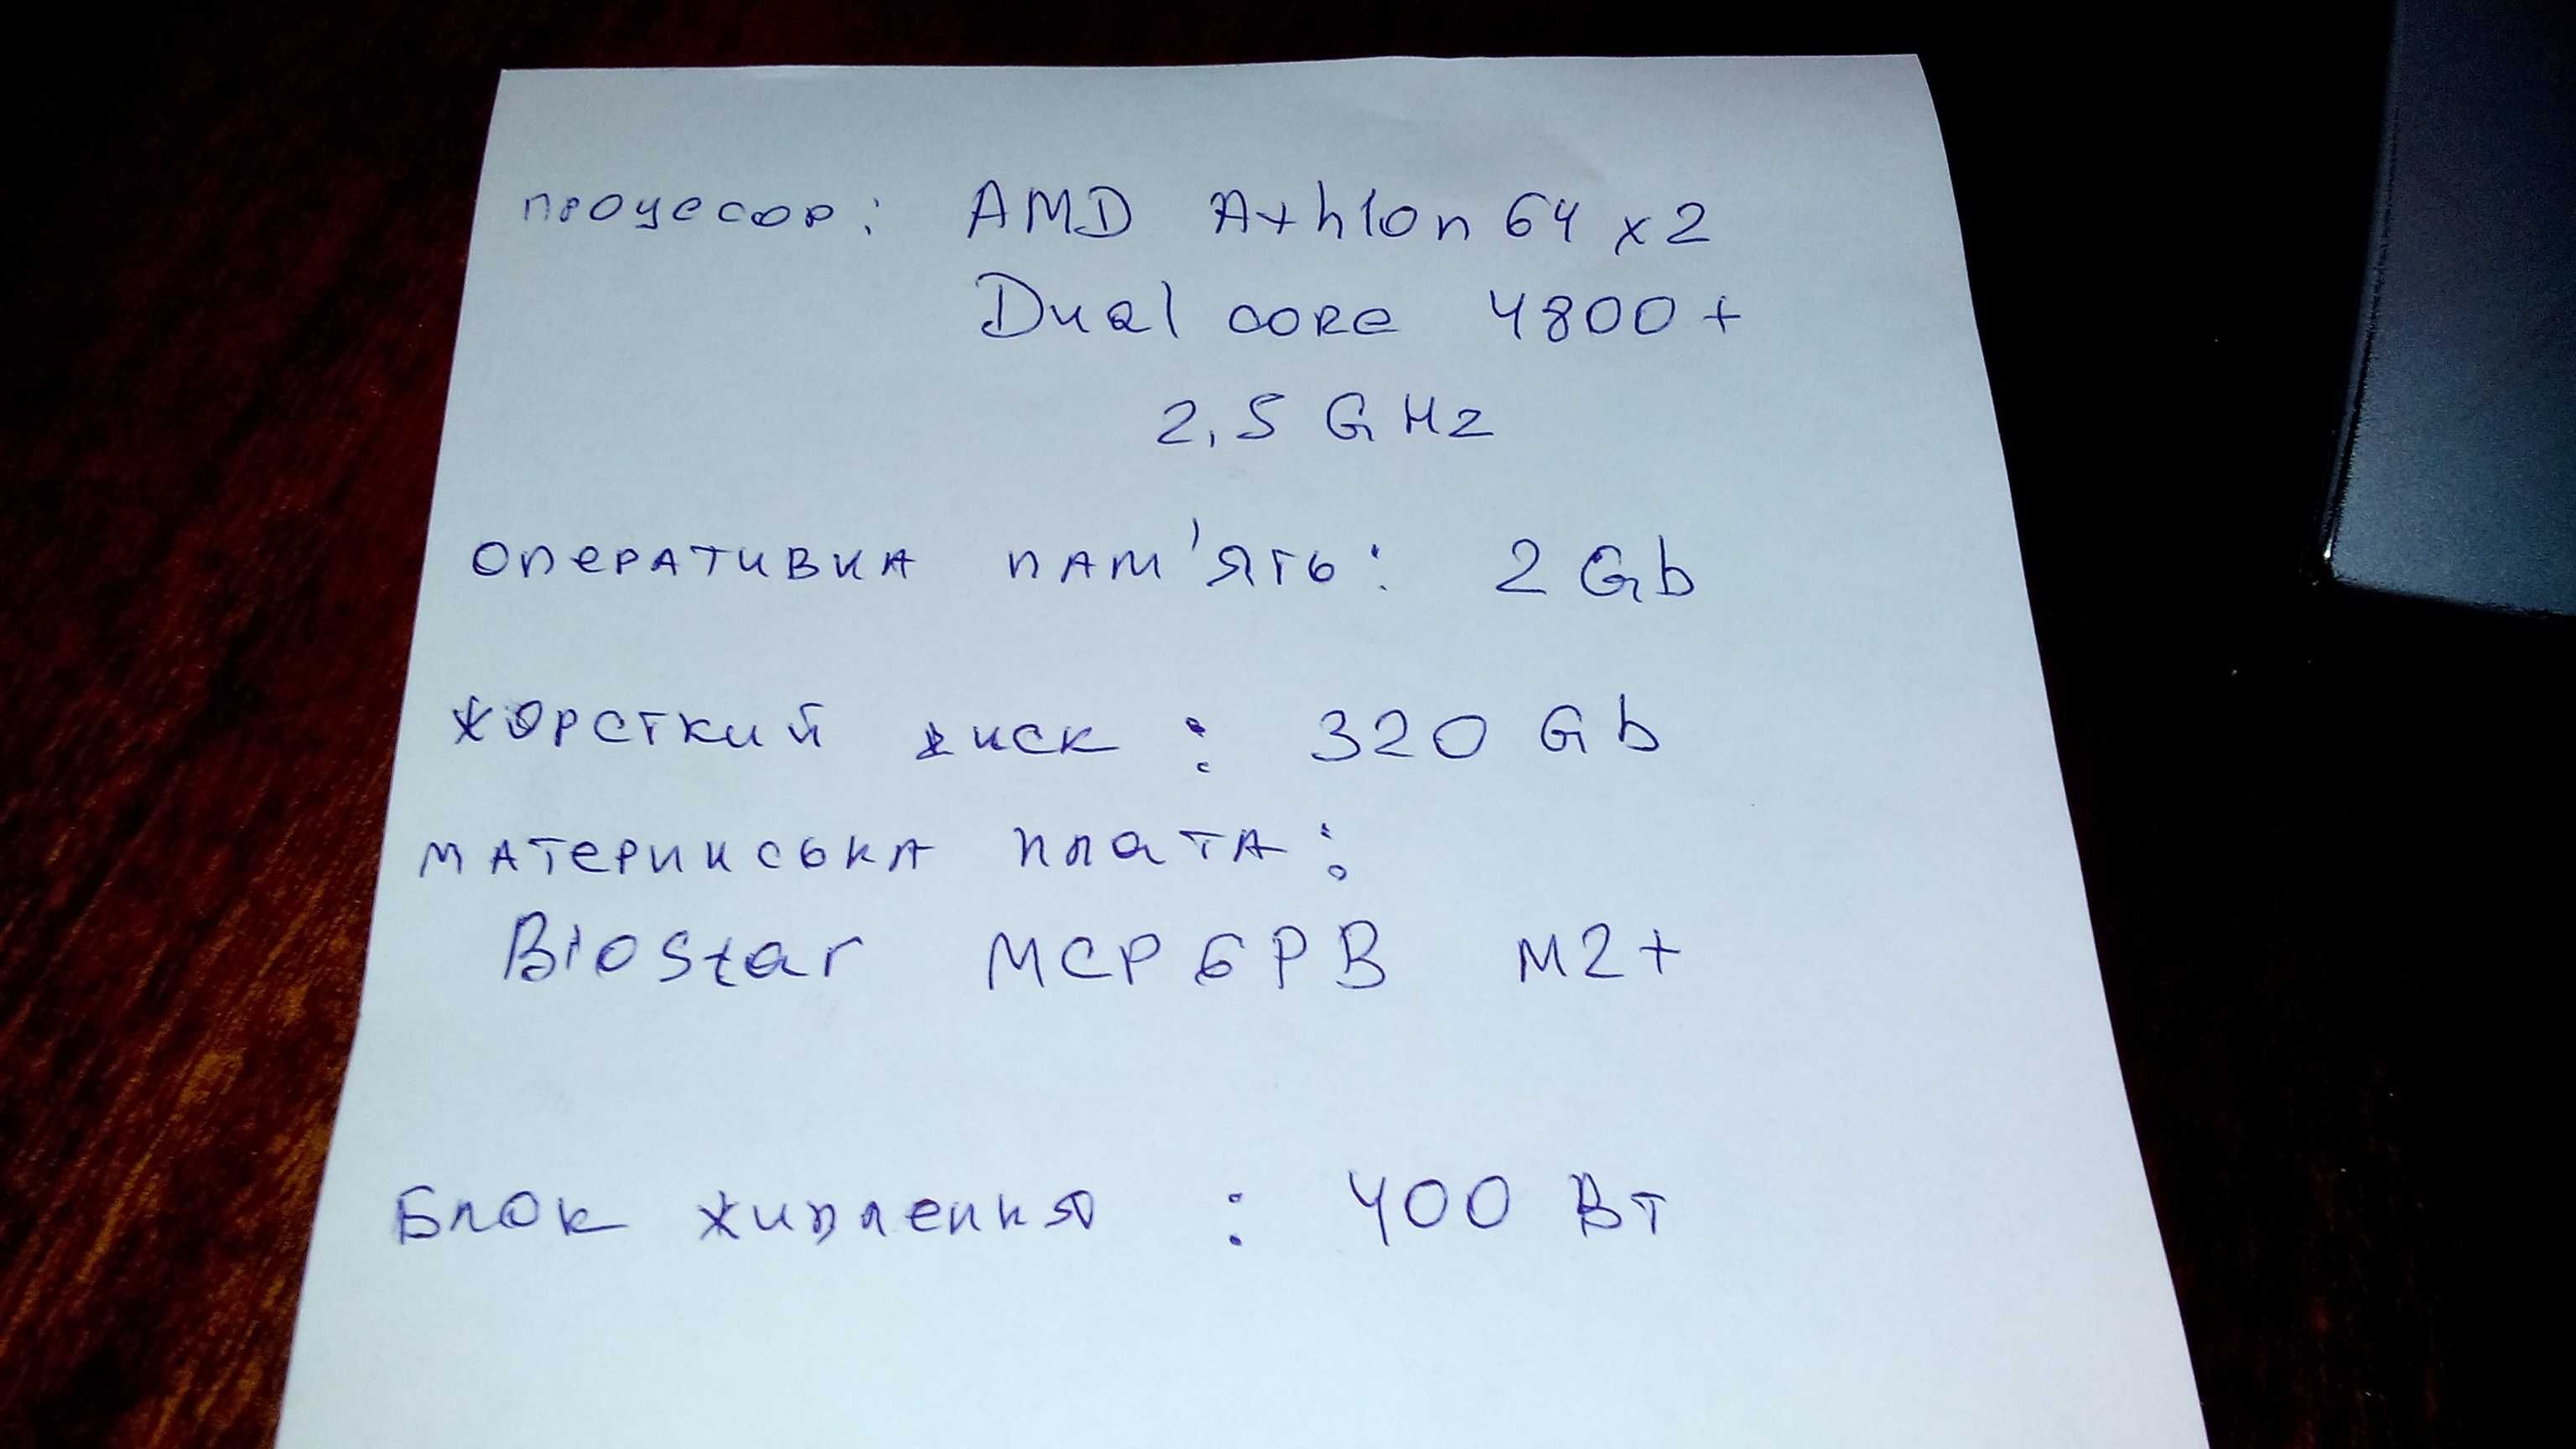 процесор: AMD Athlon 64 x2
Dual core 4800+
2,5 GHz
оперативна пам'ять: 2 Gb
жорсткий диск : 320 Gb
материнська плата:
BioStar MCP6PB M2+
Блок живлення : 400 Вт